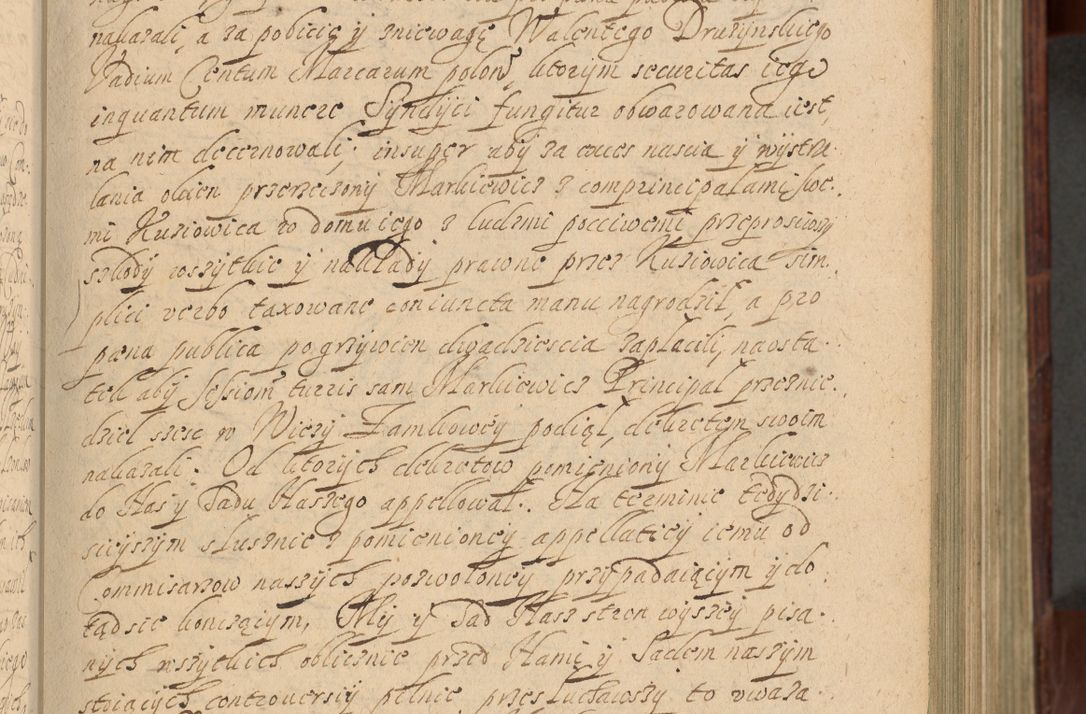 nakazali, a za pobicie y zniewagę Walentego Druzynskiego
Vadium Centum Marcarum polon, ktorym securitas iego
inquantum munere Syndyci fungitur obwarowana iest,
na nim decernowali; insuper aby za exces nascia y wystrze-
lania okien przerzeczony Markiewicz z comprincipałami swe-
mi Kusiowica w domu iego z ludzmi poczciwemi przeprosiwszy
szkody wszytkie y nakłady prawne przez Kusiowica sim-
plici verbo taxowane coniuncta manu nagrodził, a pro
pæna publica po grzywien dwadziescia zapłacili, naosta-
tek aby sessiom turris sam Markiewicz Principal przez nie-
dziel szesc w Wiezy Zamkowey podiął, dekretem swoim
nakazali. Od ktorych dekretow pomieniony Markiewicz
do Nas y Sadu Naszego appellował. Na terminie tedy dzi-
sieyszym słusznie z pomienioney appellatiey iemu od
Commisarzow naszych pozwoloney przypadaiącym y do-
tąd sie konczącym, My y Sad Nasz stron wyszey pisa-
nych wszytkich oblicznie przed Nami y Sadem naszym
stoiących controversiy pelnie przesłuchawszy to uwaza-